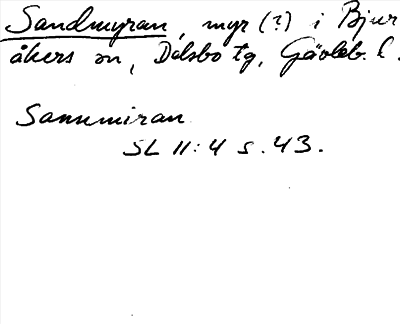 Sandmyran, myr (?) i Bjur
åkers sn, Delsbo tg, Gävleb. l.
Sannmiran
SL 11:4 s. 43.